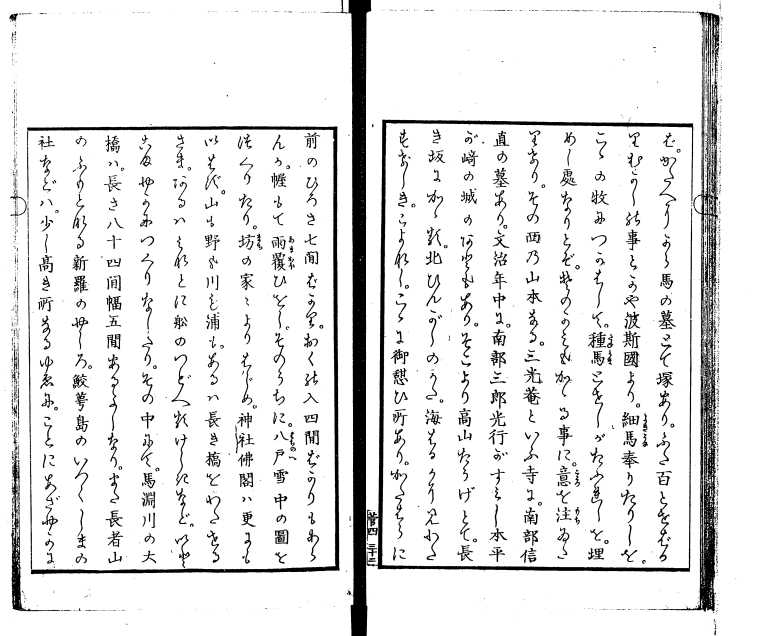 かたへりに
馬の墓とて塚あり。ふた百とせばか
りむかしの事とかや波斯國より。細馬奉りたりしを。
こゝの牧につかはして。種馬とせしがたふれしを。埋
めし處なりとぞ。そのかみもかゝる事に。意を注ゐた
りあり。その西の山本なる。三光菴といふ寺に。南部信
直の墓あり。文治年中に。南部三郎光行がすみし本平
が﨑の城のあともあり。そこより高山たうげとて。長
き坂にかゝる。北ひんがしのかた。海はるかにみわた
こよなし。こゝに御憩ひ所あり。かたはらに
菅四 三十三
前のひろさ七間ばかり。おくの入四間ばかりもあら
んか。幄もて雨覆ひをし。そのうちに。八戸雪中の圖を
つくりたり。坊の家々よりはじめ。神社佛閣ハ更にも
いはず。山も野も川も浦も。あるハ長き橋をわたせる
さま。あるハみなとに船のつどへるけしきなど。いと
こまやかにつくりなしたり。その中にも。馬淵川の大
橋ハ。長さ八十四間幅五間あるよしなり。また長者山
のふもとなる新羅のやしろ。鮫蕚島のいつくしまの
社などハ。少し高き所なるゆゑに。ことにあざやかに